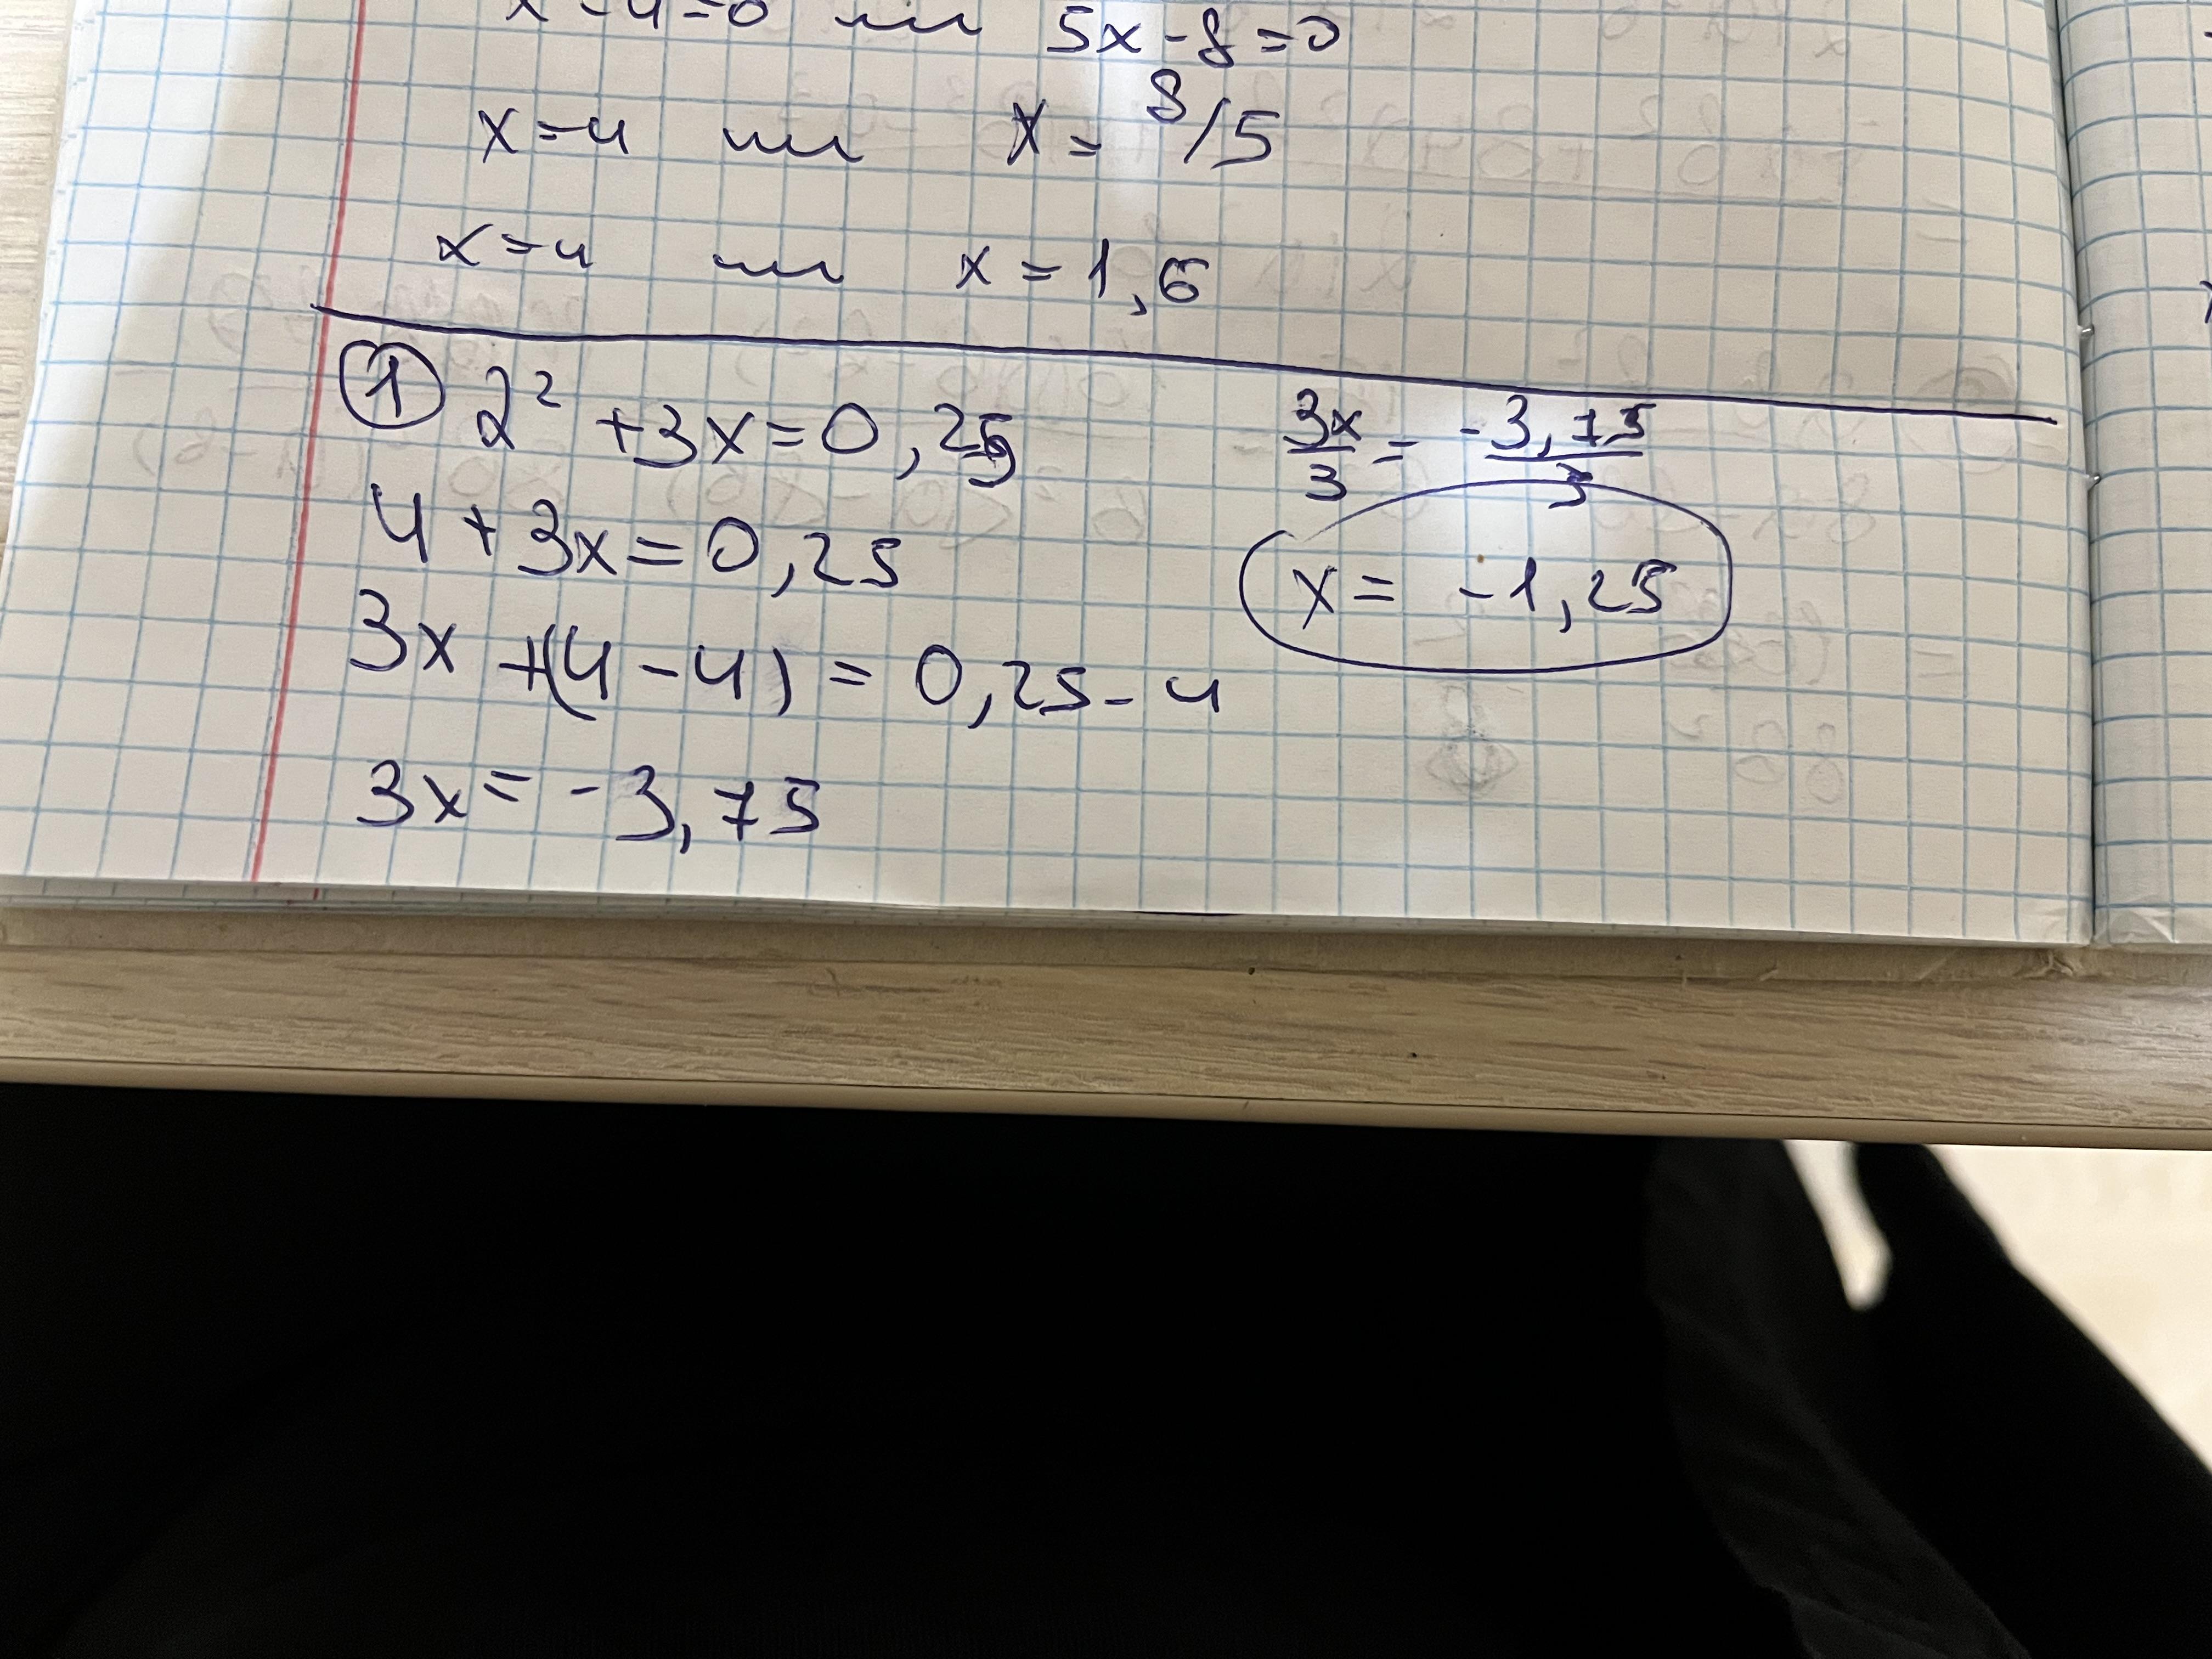 x-4=0 или 5x-8=0
x=4 или x=8/5
x=4 или x=1,6
① 2² +3x=0,25
4+3x=0,25
3x+(4-4)=0,25-4
3x=-3,75
3x/3=-3,75/3
x=-1,25